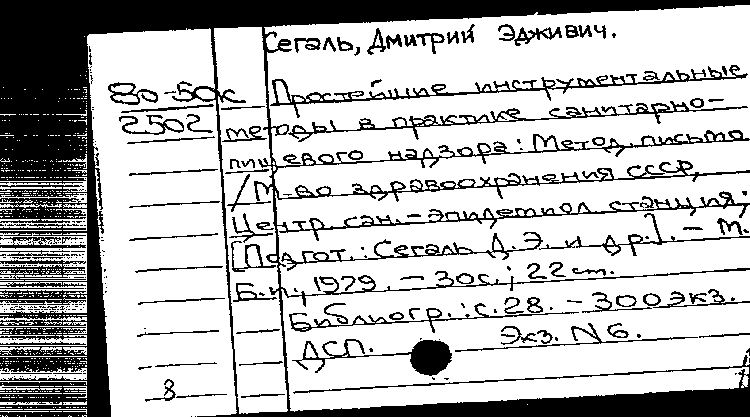 Сегаль, Дмитрий Эдживич.
80-50к Простейшие инструментальные
2502 методы в практике санитарно-
пищевого надзора: Метод. письмо
/М-во здравоохранения СССР,
Центр. сан.-эпидемиол. станция;
[Подгот.: Сегаль Д. Э. и др.]. - М.
Б.и., 1979. - 30с.; 22 см.
Библиогр.: с. 28. - 300 экз.
ДСП. Экз. N6.
8